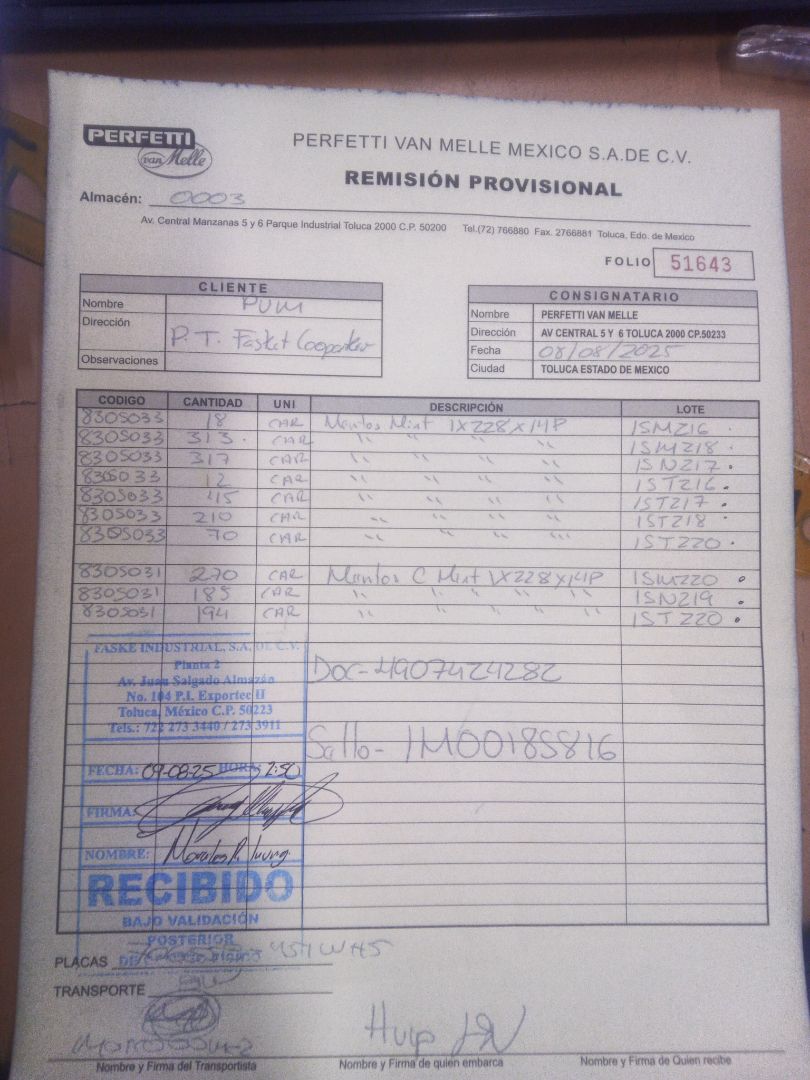 PERFETTI
van Melle
PERFETTI VAN MELLE MEXICO S.A.DE C.V.
REMISIÓN PROVISIONAL
Almacén: 0003
Av. Central Manzanas 5 y 6 Parque Industrial Toluca 2000 C.P. 50200 Tel.(72) 766880 Fax. 2766881 Toluca, Edo. de Mexico
FOLIO 51643
CLIENTE
Nombre PVM
Dirección P. T. Fasket
Observaciones
CONSIGNATARIO
Nombre PERFETTI VAN MELLE
Dirección AV CENTRAL 5 Y 6 TOLUCA 2000 CP.50233
Fecha 08/08/2025
Ciudad TOLUCA ESTADO DE MEXICO
CODIGO CANTIDAD UNI DESCRIPCIÓN LOTE
8305033 18 CAR Mentos Mint 1X228X14P ISM216
8305033 313 CAR " " " " ISM218
8305033 317 CAR " " " " ISN217
8305033 12 CAR " " " " IST216
8305033 45 CAR " " " " IST217
8305033 210 CAR " " " " IST218
8305033 70 CAR " " " " IST220
8305031 270 CAR Mentos C Mint 1X228X14P ISM220
8305031 185 CAR " " " " ISN219
8305031 194 CAR " " " " IST220
FASKE INDUSTRIAL, S.A. DE C.V.
Planta 2
Av. Juan Salgado Almazán
No. 104 P.I. Exportec II
Toluca, México C.P. 50223
Tels.: 722 273 3440 / 273 3911
Doc-4907424282
Sello-1M00185816
FECHA: 09-08-25 HORA: 2:50
FIRMA:
NOMBRE: Morales P. Irving
RECIBIDO
BAJO VALIDACIÓN
POSTERIOR
PLACAS
TRANSPORTE
Hugo
Nombre y Firma del Transportista
Nombre y Firma de quien embarca
Nombre y Firma de Quien recibe